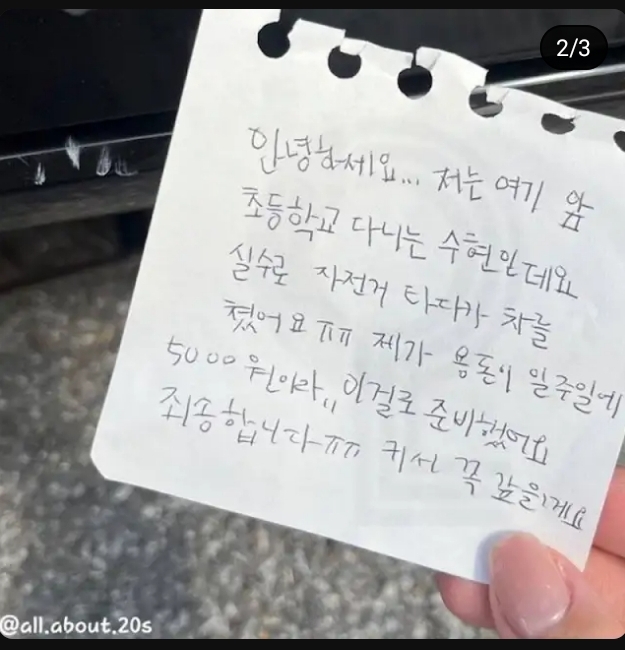 2/3
안녕하세요... 저는 여기 앞
초등학교 다니는 수현인데요
실수로 자전거 타다가 차를
쳤어요 ㅠㅠ 제가 용돈이 일주일에
5000원이라,, 이걸로 준비했어요
죄송합니다ㅠㅠ 커서 꼭 갚을게요
@all.about.20s